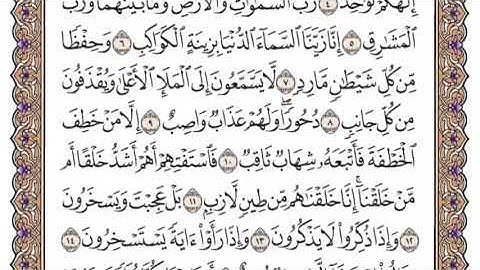 إِلَٰهَكُمْ لَوَٰحِدٌ ٤ رَّبُّ السَّمَٰوَٰتِ وَالْأَرْضِ وَمَا بَيْنَهُمَا وَرَبُّ
الْمَشَٰرِقِ ٥ إِنَّا زَيَّنَّا السَّمَآءَ الدُّنْيَا بِزِينَةٍ الْكَوَاكِبِ ٦ وَحِفْظًا
مِّن كُلِّ شَيْطَٰنٍ مَّارِدٍ ٧ لَّا يَسَّمَّعُونَ إِلَى الْمَلَإِ الْأَعْلَىٰ وَيُقْذَفُونَ
مِن كُلِّ جَانِبٍ ٨ دُحُورًا ۖ وَلَهُمْ عَذَابٌ وَاصِبٌ ٩ إِلَّا مَنْ خَطِفَ
الْخَطْفَةَ فَأَتْبَعَهُۥ شِهَابٌ ثَاقِبٌ ١٠ فَاسْتَفْتِهِمْ أَهُمْ أَشَدُّ خَلْقًا أَم
مَّنْ خَلَقْنَآ ۚ إِنَّا خَلَقْنَٰهُم مِّن طِينٍ لَّازِبٍۭ ١١ بَلْ عَجِبْتَ وَيَسْخَرُونَ
١٢ وَإِذَا ذُكِّرُوا۟ لَا يَذْكُرُونَ ١٣ وَإِذَا رَأَوْا۟ ءَايَةً يَسْتَسْخِرُونَ ١٤